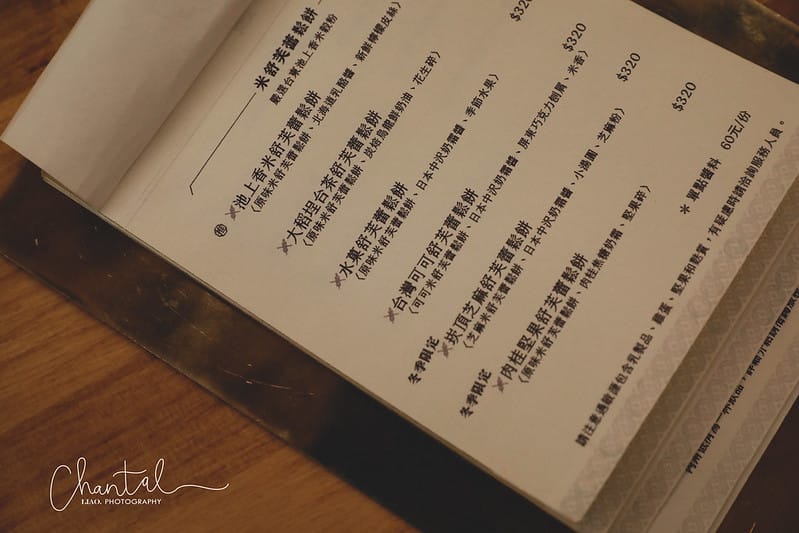 米舒芙蕾鬆餅
嚴選台東池上香米穀粉
池上香米舒芙蕾鬆餅
(原味米舒芙蕾鬆餅、北海道乳酪醬、新鮮檸檬皮絲)
$320
大稻埕台茶舒芙蕾鬆餅
(原味米舒芙蕾鬆餅、炭焙烏龍鮮奶油、花生碎)
$320
水菓舒芙蕾鬆餅
(原味米舒芙蕾鬆餅、日本中沢奶霜醬、季節水果)
台灣可可舒芙蕾鬆餅
(可可米舒芙蕾鬆餅、日本中沢奶霜醬、屏東巧克力刨屑、米香)
$320
冬季限定 崁頂芝麻舒芙蕾鬆餅
(芝麻米舒芙蕾鬆餅、日本中沢奶霜醬、小湯圓、芝麻粉)
$320
冬季限定 肉桂堅果舒芙蕾鬆餅
(原味米舒芙蕾鬆餅、肉桂焦糖奶霜、堅果碎)
* 單點醬料 60元/份
請注意過敏源包含乳製品、雞蛋、堅果和麩質，有疑慮時請洽詢服務人員。
Chantal
LIAO. PHOTOGRAPHY